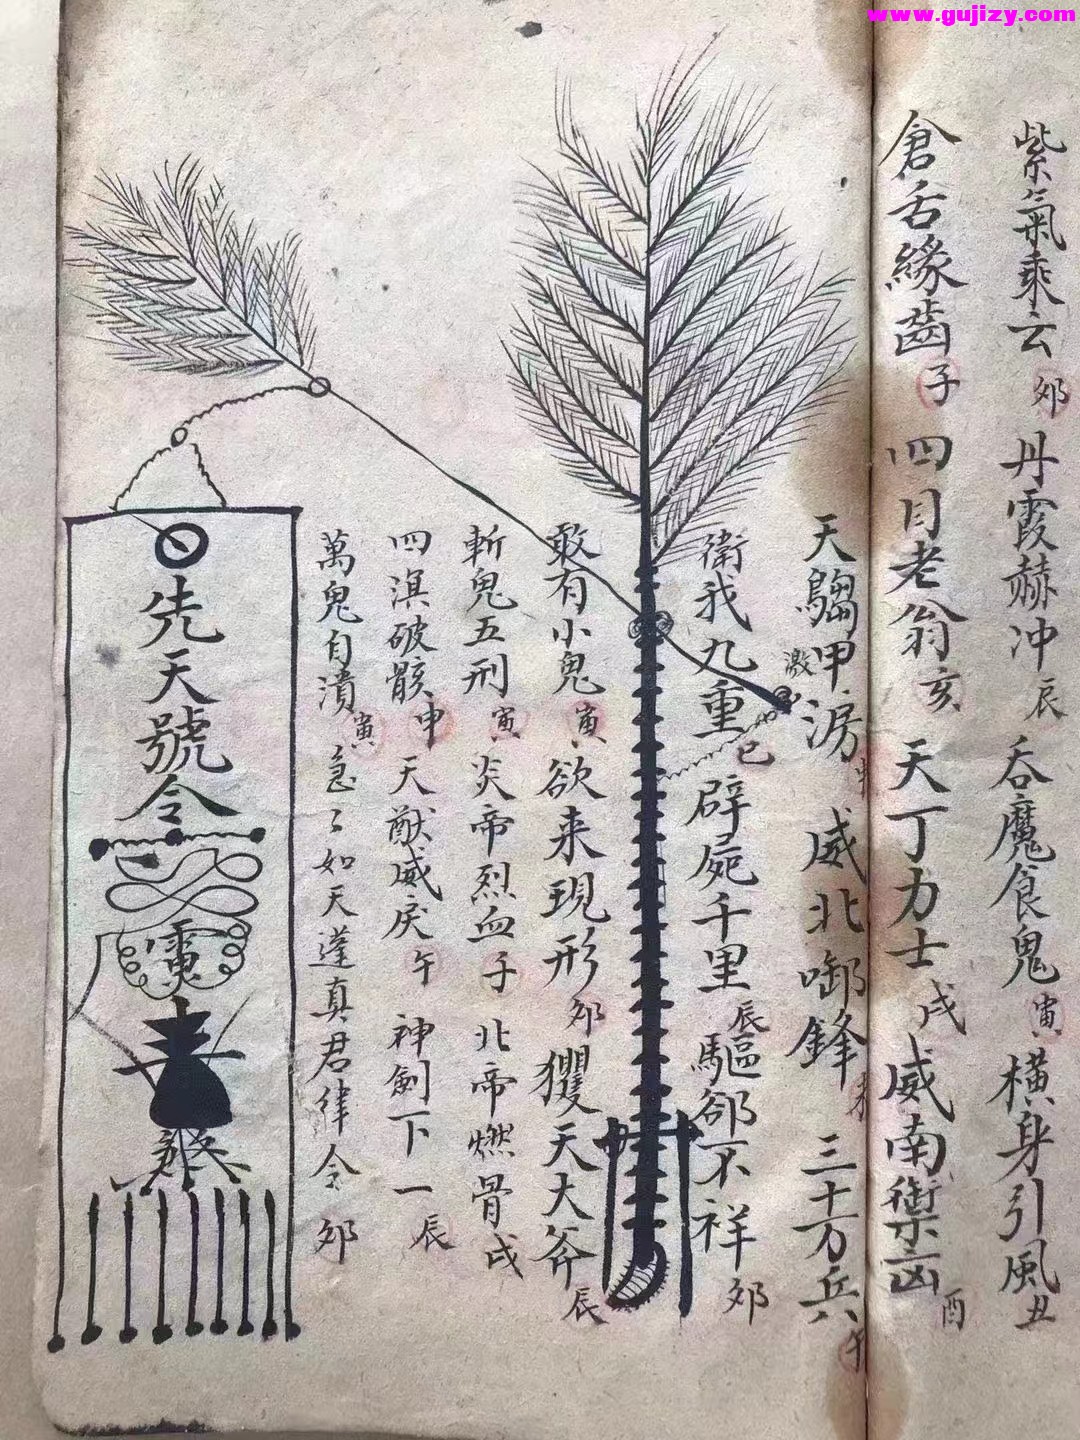 www.gujizy.com
紫氣乘云 夘 丹霞赫冲 辰 吞魔食鬼 寅 橫身引風 丑
倉舌緣齒 子 四目老翁 亥 天丁力士 戌 威南禦凶 酉
天騶甲 激 滂 申 威北啣鋒 未 三十万兵 午
衛我九重 巳 辟屍千里 辰 驅郤不祥 夘
敢有小鬼 寅 欲来現形 夘 玃天大斧 辰
斬鬼五刑 寅 炎帝烈血 子 北帝燃骨 戌
四溟破骸 申 天猷威戾 午 神劍下一 辰
萬鬼自潰 寅 急々如天蓬真君律令 夘
先天號令